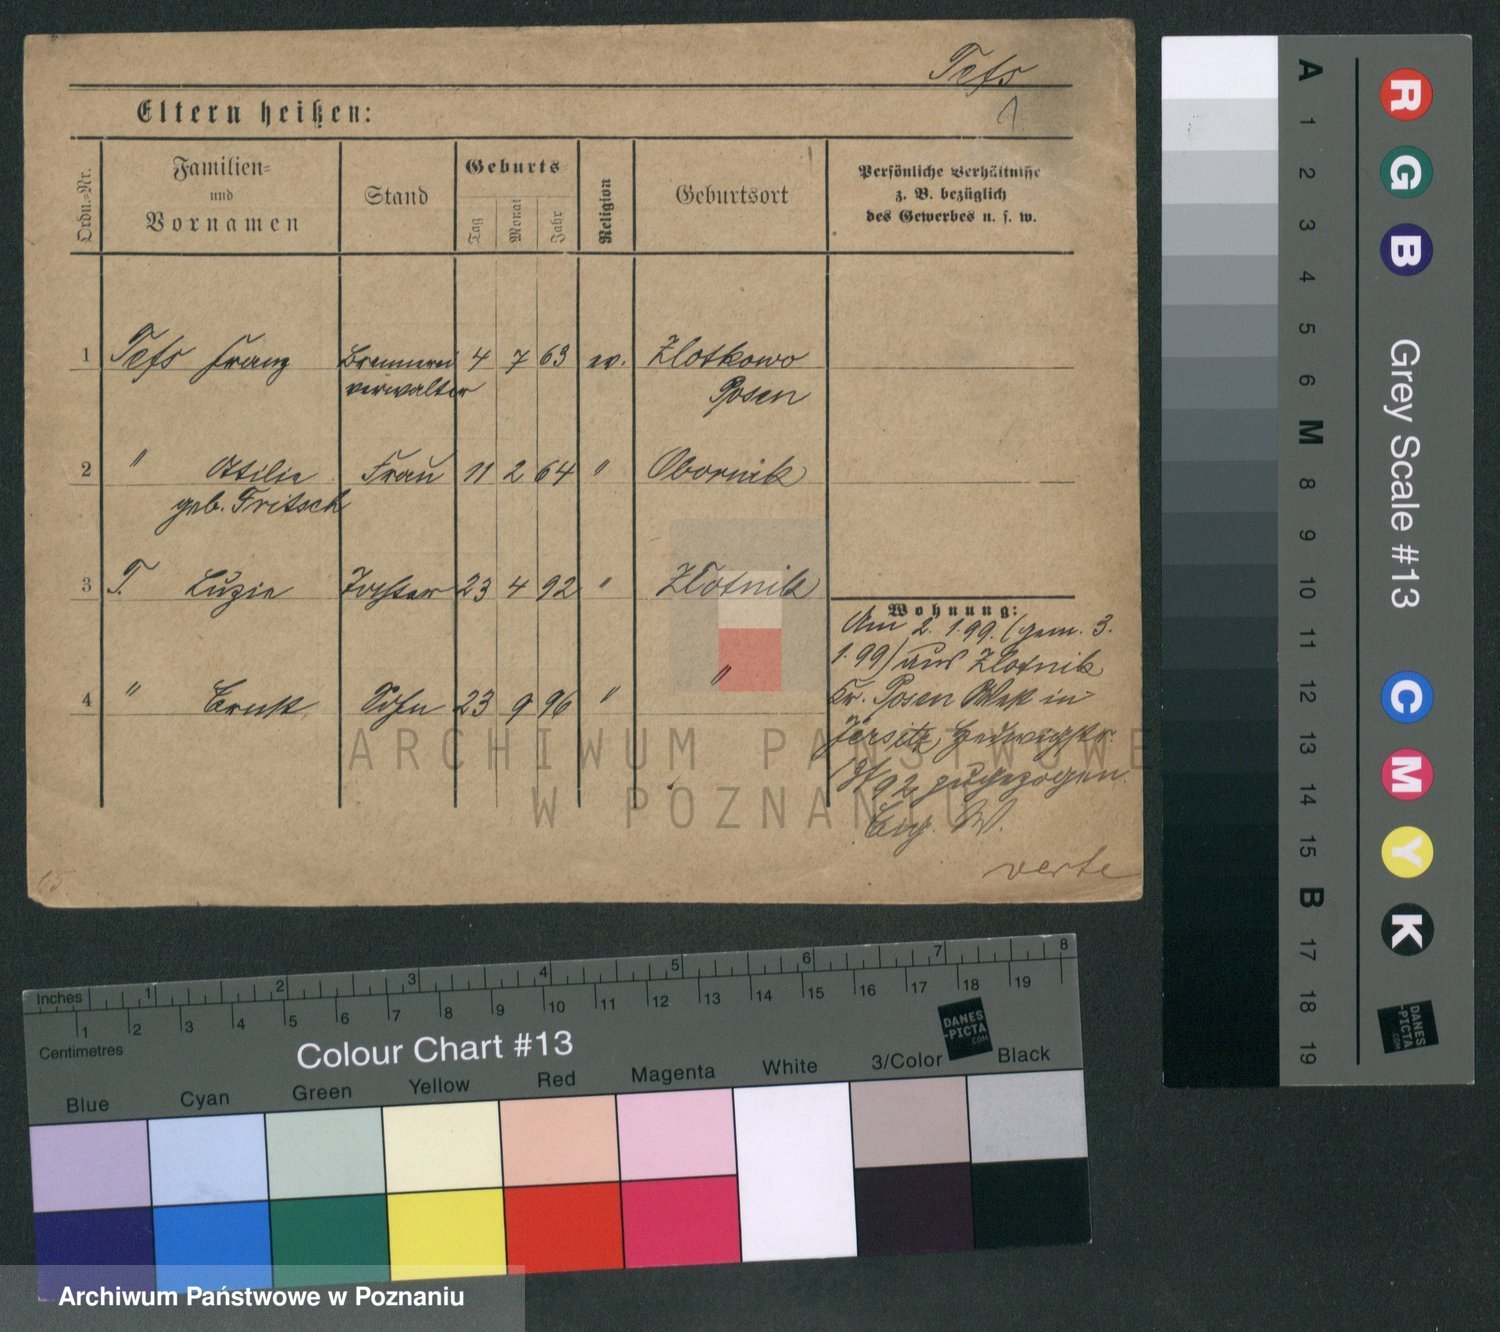 Tefs
Eltern heißen:
Ordn.-Nr.
Familien-
und
Vornamen
Stand
Geburts
Tag
Monat
Jahr
Religion
Geburtsort
Persönliche Verhältnisse
z. B. bezüglich
des Gewerbes u. s. w.
1 Tefs Franz Brennerei 4 7 63 ev. Zlotkowo
verwalter Posen
2 " Ottilie Frau 11 2 64 " Obornik
geb. Fritsch
3 T. Luzie Tochter 23 4 92 " Zlotnik
4 " Ernst Sohn 23 9 96 " "
Wohnung:
Am 2. 1. 99. (gem. 3.
1. 99) aus Zlotnik
Kr. Posen West in
Jersitz, Hedwigstr.
zugezogen.
verte
ARCHIWUM PAŃSTWOWE
W POZNANIU
A 1 2 3 4 5 6 M 8 9 10 11 12 13 14 15 B 17 18 19
R G B
Grey Scale #13
C M Y K
DANES
-PICTA
.COM
Inches 1 2 3 4 5 6 7 8
1 2 3 4 5 6 7 8 9 10 11 12 13 14 15 16 17 18 19
Centimetres
Colour Chart #13
DANES
-PICTA
.COM
Blue Cyan Green Yellow Red Magenta White 3/Color Black
Archiwum Państwowe w Poznaniu